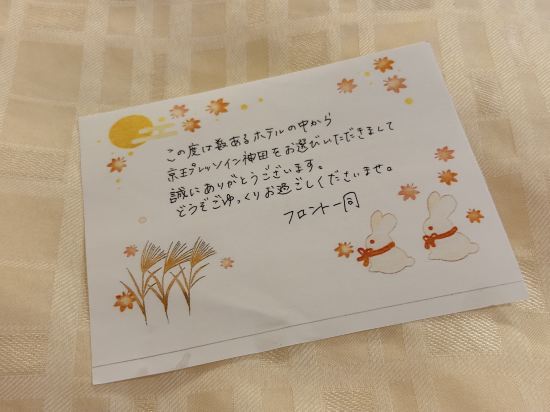 この度は数あるホテルの中から
京王プレッソイン神田をお選びいただきまして
誠にありがとうございます。
どうぞごゆっくりお過ごしくださいませ。
フロント一同